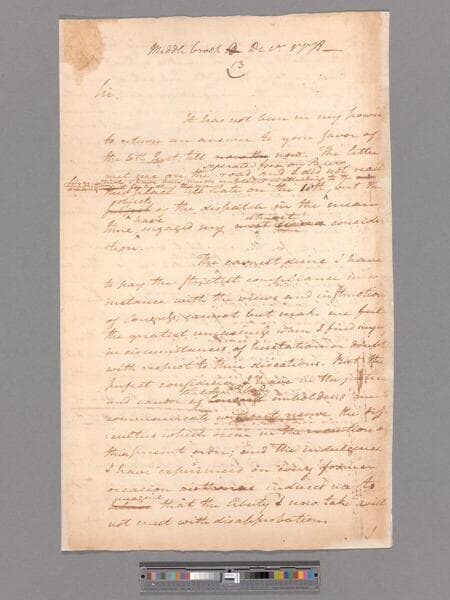 Middle brook Decr 1778
13
Sir.
It has not been in my power
to return an answer to your favor of
the 6th Inst. till now. The letter
separated from my Papers
met me on the road and I did not reach
this place till late on the 11th, but the
objects
of the dispatch in the mean
time, have engaged my utmost consider
tion.
The earnest desire I have
to pay the strictest compliance in
instance with the views and instruction
of Congress, cannot but make me feel
the greatest uneasiness when I find my
in circumstances of hesitation or doubt
with respect to their directions. But the
perfect confidence I have in the justice
and candor of that body emboldens me
communicate without reserve the diff
culties which occur in the execution o
their present order; and the indulgence
I have experienced on every former
occasion induces me to
imagine that the liberty I now take will
not meet with disapprobation.